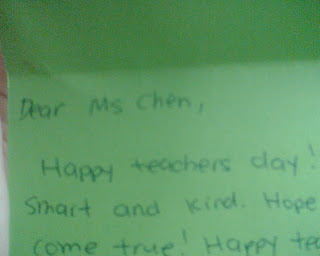 Dear Ms Chen,
Happy teachers day!
Smart and kind. Hope
come true! Happy tea